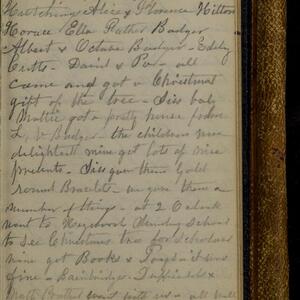 Hutchins Alice & Florence Hilton
Horace Ella Father Badger
Albert & Octave Badger - Eddy
Critts - David & Po - all
came and got a Christmas
gift of the tree - Sis baby
Mattie got a pretty house from
L. V. Badger - the children were
delighted mine got lots of nice
presents - Sis gave them Gold
round Bracelets - we gave them a
number of things - at 2 Oclock
went to Heywood Sunday School
to see Christmas tree for Scholars
mine got Books & Dogs - it was
fine - Bainbridge
went with us - all